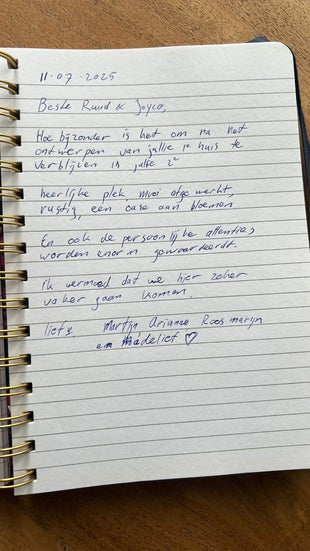 11-07-2025
Beste Ruud & Joyce,
Hoe bijzonder is het om na het
ontwerpen van jullie 1e huis te
verblijven in jullie 2e
heerlijke plek mooi afgewerkt,
rustig, een oase aan bloemen
En ook de persoonlijke attenties
worden enorm gewaardeerd.
Ik vermoed dat we hier zeker
vaker gaan komen.
liefs, Martijn Arianne Roosmarijn
en Madelief ♡